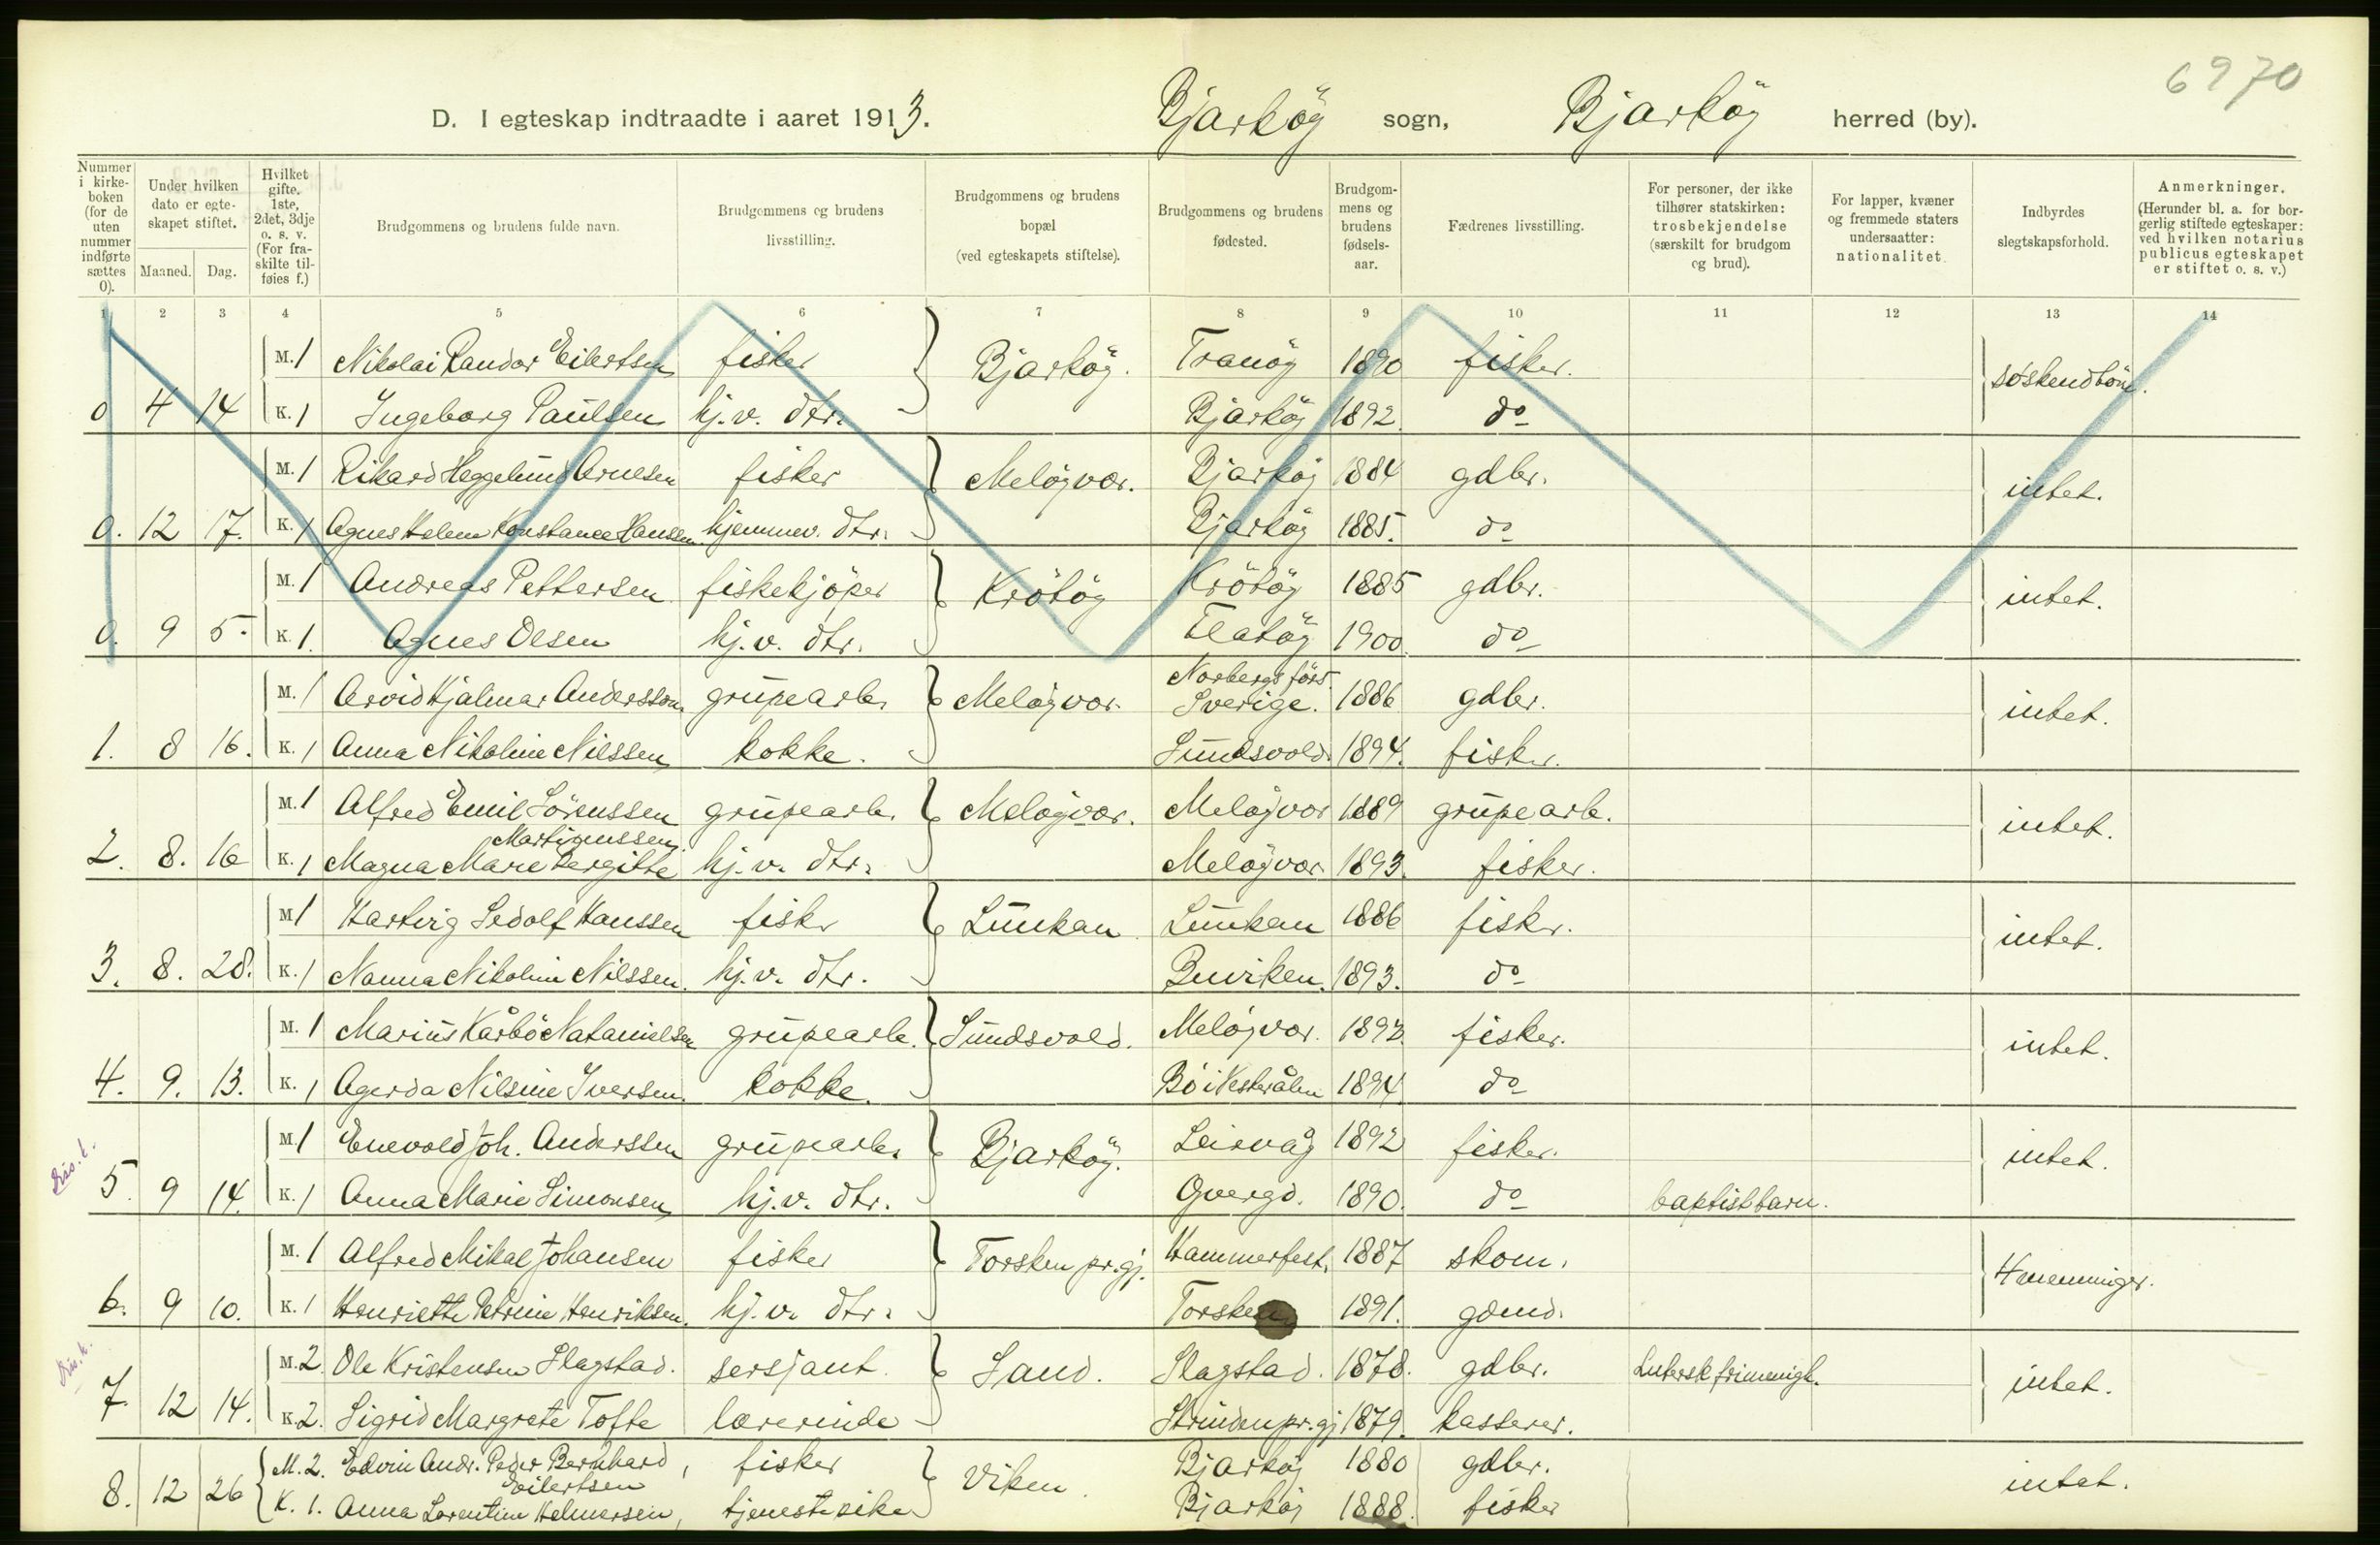 6970
D. I egteskap indtraadte i aaret 1913. Bjarköy sogn, Bjarköy herred (by).
Nummer i kirke- boken (for de uten nummer indførte sættes 0).
Under hvilken dato er egte- skapet stiftet.
Maaned. Dag.
Hvilket gifte. 1ste, 2det, 3dje o. s. v. (For fra- skilte til- føies f.)
Brudgommens og brudens fulde navn.
Brudgommens og brudens livsstilling.
Brudgommens og brudens bopæl (ved egteskapets stiftelse).
Brudgommens og brudens fødested.
Brudgom- mens og brudens fødsels- aar.
Fædrenes livsstilling.
For personer, der ikke tilhører statskirken: trosbekjendelse (særskilt for brudgom og brud).
For lapper, kvæner og fremmede staters undersaatter: nationalitet
Indbyrdes slegtskapsforhold.
Anmerkninger. (Herunder bl. a. for bor- gerlig stiftede egteskaper: ved hvilken notarius publicus egteskapet er stiftet o. s. v.)
1 2 3 4 5 6 7 8 9 10 11 12 13 14
M. 1 Nikolai Randor Eilertsen fisker Bjarköy. Tranöy 1890 fisker. søskendbörn.
0 4 14 K. 1 Ingeborg Paulsen hj. v. dtr. Bjarköy 1892. do
M. 1 Rikard Heggelund Arnesen fisker Melöyvær. Bjarköy 1884 gdbr. intet.
0. 12 17. K. 1 Agnes Helene Konstance Hanssen. hjemmev. dtr. Bjarköy 1885. do
M. 1 Andreas Pettersen fiskekjöper Krötöy Krötöy 1885 gdbr. intet.
0. 9 5. K. 1. Agnes Olsen hj. v. dtr. Flatöy 1900. do
M. 1 Arvid Hjalmar Andersson grupearb. Melöyvær. Norbergs förs. Sverige. 1886 gdbr. intet.
1. 8 16. K. 1 Anna Nikoline Nilssen kokke. Sundsvold. 1894. fisker.
M. 1 Alfred Emil Sörenssen grupearb. Melöyvær. Melöyvær 1889 grupearb. intet.
Martinussen.
2. 8. 16 K. 1 Magna Marie Bergitte hj. v. dtr. Melöyvær. 1893. fisker.
M 1 Hartvig Sedolf Hanssen fisker Lunkan Lunkan 1886 fisker. intet.
3. 8. 28. K. 1 Nanna Nikoline Nilssen. hj. v. dtr. Buviken. 1893. do
M. 1 Marius Kårbö Natanielsen grupearb. Sundsvold. Melöyvær. 1892 fisker. intet.
4. 9. 13. K. 1 Agerda Nilsine Iversen. kokke. Bö i Vesterålen 1894. do
M. 1 Enevold Joh. Anderssen grupearb. Bjarköy. Leirvåg 1892 fisker. intet.
5. 9 14. K. 1 Anna Marie Simonsen hj. v. dtr. 1890. do baptistbarn.
M. 1 Alfred Mikal Johansen fisker Torsken pr.gj. Hammerfest. 1887 skom. 4 menninger.
6. 9 10. K. 1 Henriette Petrine Henriksen. hj. v. dtr. Torsken 1891. gdmd.
M. 2 Ole Kristensen Slagstad. sersjant. Sand. Slagstad. 1878. gdbr. Lutersk frimenigh. intet.
7. 12 14. K. 2. Sigrid Margrete Tofte lærerinde Strinden pr.gj 1879. kasserer.
M. 2. Edvin Andr. Peder Bernhard, fisker Viken. Bjarköy 1880 gdbr. intet.
Eilertsen
8. 12 26 K. 1. Anna Lorentine Helmersen, tjenestepike Bjarköy 1888. fisker